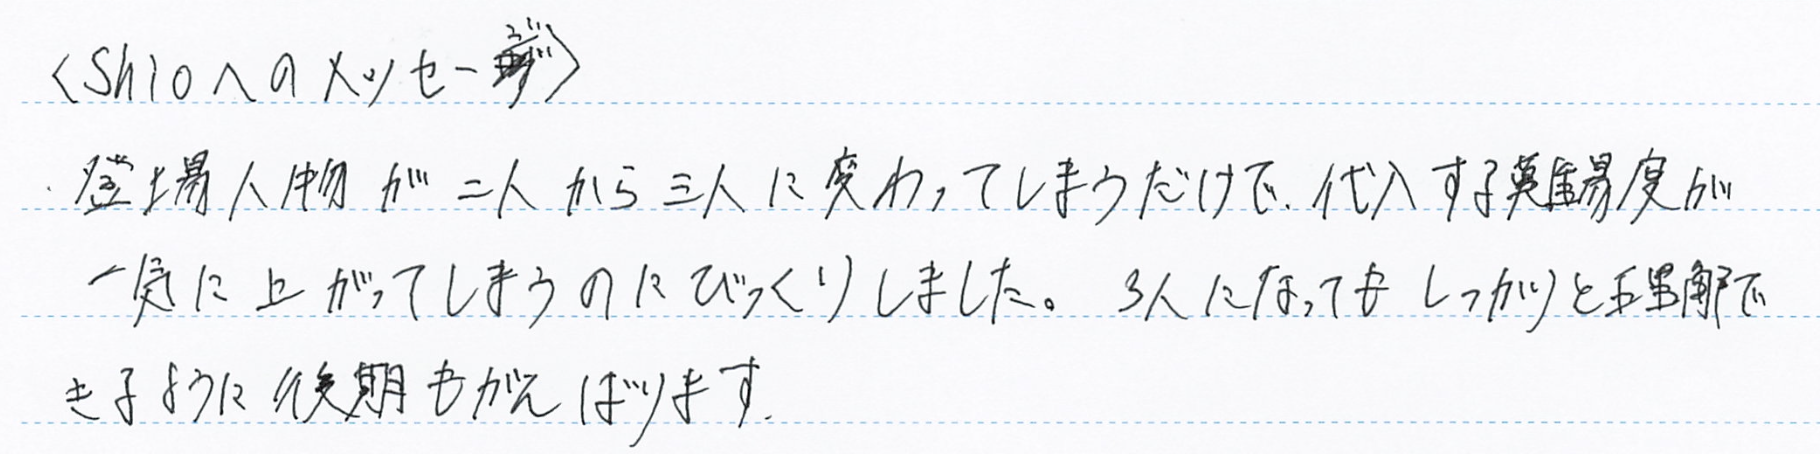 〈Shioへのメッセージ〉
・登場人物が二人から三人に変わってしまうだけで、代入する難易度が
一気に上がってしまうのにびっくりしました。3人になってもしっかりと理解で
きるように後期もがんばります。